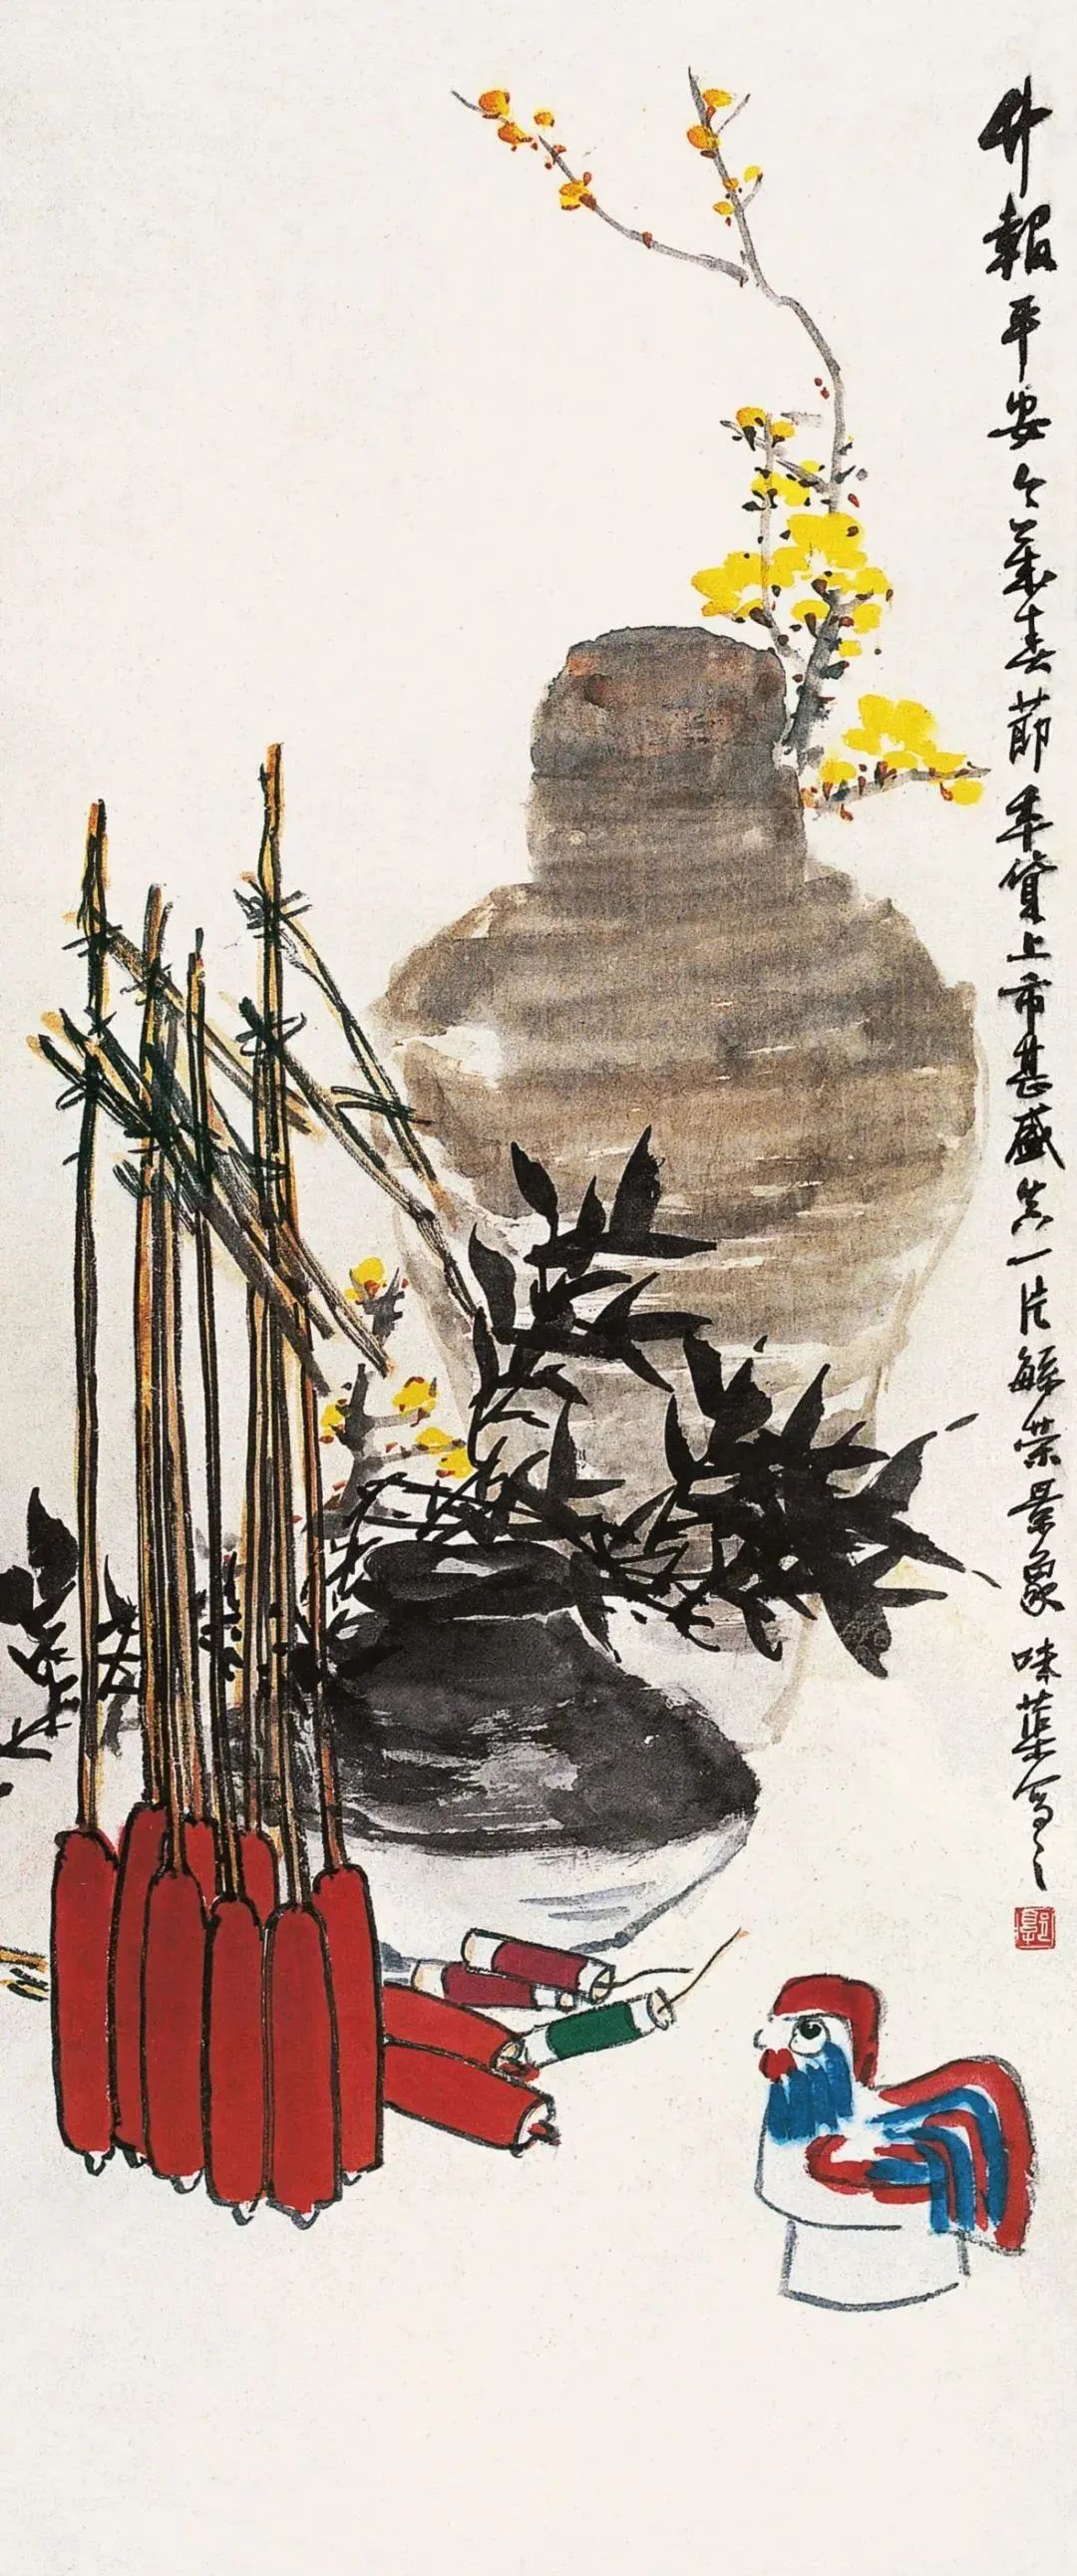 竹報平安今歲春節年貨上市甚盛呈一片繁榮景象味蕖寫之
郭